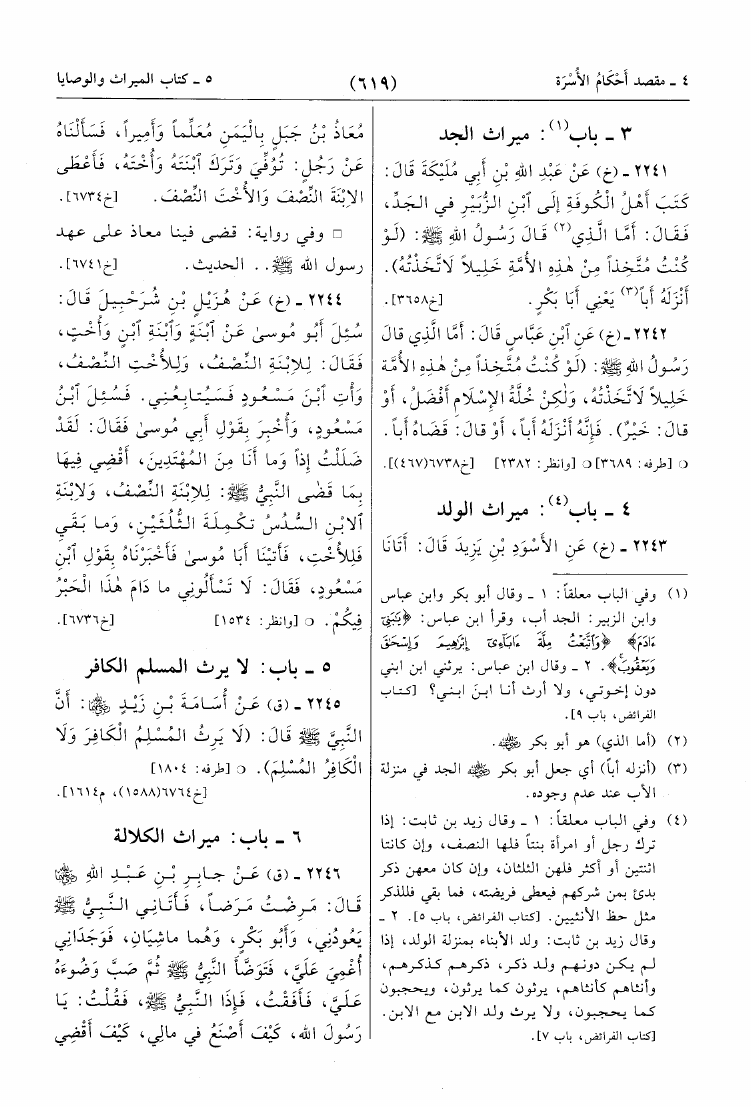 ٤ ـ مقصد أَحْكَامُ الأُسْرَة
(٦١٩)
٥ ـ كتاب الميراث والوصايا
٣ ـ باب(١): ميراث الجد
٢٢٤١ ـ (خ) عَنْ عَبْدِ اللهِ بْنِ أَبِي مُلَيْكَةَ قَالَ:
كَتَبَ أَهْلُ الْكُوفَةِ إِلَى ٱبْنِ الزُّبَيْرِ في الجَدِّ،
فَقَالَ: أَمَّا الَّذِي(٢) قَالَ رَسُولُ اللهِ ﷺ: (لَوْ
كُنْتُ مُتَّخِذاً مِنْ هٰذِهِ الأُمَّةِ خَلِيلاً لاَتَّخَذْتُهُ).
أَنْزَلَهُ أَباً(٣) يَعْنِي أَبَا بَكْرٍ. [خ٣٦٥٨].
٢٢٤٢ ـ (خ) عَنِ ٱبْنِ عَبَّاسٍ قَالَ: أَمَّا الَّذِي قَالَ
رَسُولُ اللهِ ﷺ: (لَوْ كُنْتُ مُتَّخِذاً مِنْ هٰذِهِ الأُمَّة
خَلِيلاً لاَتَّخَذْتُهُ، وَلٰكِنْ خُلَّةُ الإِسْلَامِ أَفْضَلُ، أَوْ
قالَ: خَيْرٌ). فَإِنَّهُ أَنْزَلَهُ أَباً، أَوْ قالَ: قَضَاهُ أَباً.
○ [طرفه: ٣٦٨٩] ○ [وانظر: ٢٣٨٢] [خ٦٧٣٨(٤٦٧)].
٤ ـ باب(٤): ميراث الولد
٢٢٤٣ ـ (خ) عَنِ الأَسْوَدِ بْنِ يَزِيدَ قَالَ: أَتَانَا
(١) وفي الباب معلقاً: ١ ـ وقال أبو بكر وابن عباس
وابن الزبير: الجد أب، وقرأ ابن عباس: ﴿يَٰبَنِىٓ
ءَادَمَ﴾ ﴿وَٱتَّبَعْتُ مِلَّةَ ءَابَآءِىٓ إِبْرَٰهِيمَ وَإِسْحَٰقَ
وَيَعْقُوبَۚ﴾. ٢ ـ وقال ابن عباس: يرثني ابن ابني
دون إخوتي، ولا أرث أنا ابنَ ابني؟ [كتاب
الفرائض، باب ٩].
(٢) (أما الذي) هو أبو بكر رضي الله عنه.
(٣) (أنزله أباً) أي جعل أبو بكر رضي الله عنه الجد في منزلة
الأب عند عدم وجوده.
(٤) وفي الباب معلقاً: ١ ـ وقال زيد بن ثابت: إذا
ترك رجل أو امرأة بنتاً فلها النصف، وإن كانتا
اثنتين أو أكثر فلهن الثلثان، وإن كان معهن ذكر
بدئ بمن شركهم فيعطى فريضته، فما بقي فللذكر
مثل حظ الأنثيين. [كتاب الفرائض، باب ٥]. ٢ ـ
وقال زيد بن ثابت: ولد الأبناء بمنزلة الولد، إذا
لم يكن دونهم ولد ذكر، ذكرهم كذكرهم،
وأنثاهم كأنثاهم، يرثون كما يرثون، ويحجبون
كما يحجبون، ولا يرث ولد الابن مع الابن.
[كتاب الفرائض، باب ٧].
مُعَاذُ بْنُ جَبَلٍ بِالْيَمَنِ مُعَلِّماً وَأَمِيراً، فَسَأَلْنَاهُ
عَنْ رَجُلٍ: تُوُفِّيَ وَتَرَكَ ٱبْنَتَهُ وَأُخْتَهُ، فَأَعْطَى
الاِبْنَةَ النِّصْفَ وَالأُخْتَ النِّصْفَ. [خ٦٧٣٤].
□ وفي رواية: قضى فينا معاذ على عهد
رسول الله ﷺ.. الحديث. [خ٦٧٤١].
٢٢٤٤ ـ (خ) عَنْ هُزَيْلِ بْنِ شُرَحْبِيلَ قَالَ:
سُئِلَ أَبُو مُوسىٰ عَنْ ٱبْنَةٍ وَٱبْنَةِ ٱبْنٍ وَأُخْتٍ،
فَقَالَ: لِلاِبْنَةِ النِّصْفُ، وَلِلأُخْتِ النِّصْفُ،
وَأْتِ ٱبْنَ مَسْعُودٍ فَسَيُتَابِعُنِي. فَسُئِلَ ٱبْنُ
مَسْعُودٍ، وَأُخْبِرَ بِقَوْلِ أَبِي مُوسىٰ فَقَالَ: لَقَدْ
ضَلَلْتُ إِذاً وَما أَنَا مِنَ المُهْتَدِينَ، أَقْضِي فِيهَا
بِمَا قَضٰى النَّبِيُّ ﷺ: لِلاِبْنَةِ النِّصْفُ، وَلاِبْنَةِ
ٱلاِبْنِ السُّدُسُ تَكْمِلَةَ الثُّلُثَيْنِ، وَما بَقِيَ
فَلِلأُخْتِ، فَأَتَيْنَا أَبَا مُوسىٰ فَأَخْبَرْنَاهُ بِقَوْلِ ٱبْنِ
مَسْعُودٍ، فَقَالَ: لَا تَسْأَلُونِي ما دَامَ هٰذَا الْحَبْرُ
فِيكُمْ. ○ [وانظر: ١٥٣٤] [خ٦٧٣٦].
٥ ـ باب: لا يرث المسلم الكافر
٢٢٤٥ ـ (ق) عَنْ أُسَامَةَ بْنِ زَيْدٍ رضي الله عنهما: أَنَّ
النَّبِيَّ ﷺ قَالَ: (لَا يَرِثُ المُسْلِمُ الْكَافِرَ وَلَا
الْكَافِرُ المُسْلِمَ). ○ [طرفه: ١٨٠٤]
[خ٦٧٦٤(١٥٨٨)، م١٦١٤].
٦ ـ باب: ميراث الكلالة
٢٢٤٦ ـ (ق) عَنْ جابِرِ بْنِ عَبْدِ اللهِ رضي الله عنهما
قَالَ: مَرِضْتُ مَرَضاً، فَأَتَانِي النَّبِيُّ ﷺ
يَعُودُنِي، وَأَبُو بَكْرٍ، وَهُما ماشِيَانِ، فَوَجَدَانِي
أُغْمِيَ عَلَيَّ، فَتَوَضَّأَ النَّبِيُّ ﷺ ثُمَّ صَبَّ وَضُوءَهُ
عَلَيَّ، فَأَفَقْتُ، فَإِذَا النَّبِيُّ ﷺ، فَقُلْتُ: يَا
رَسُولَ اللهِ، كَيْفَ أَصْنَعُ في مالِي، كَيْفَ أَقْضِي